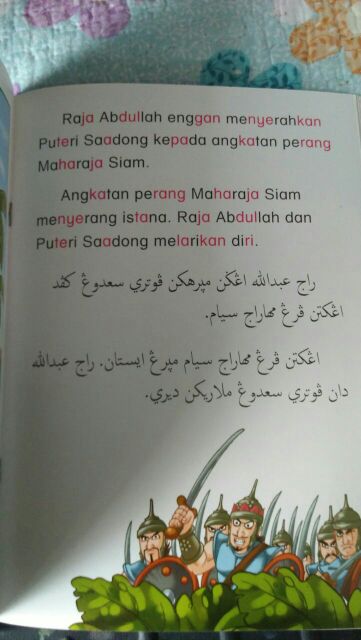 Raja Abdullah enggan menyerahkan
Puteri Saadong kepada angkatan perang
Maharaja Siam.
Angkatan perang Maharaja Siam
menyerang istana. Raja Abdullah dan
Puteri Saadong melarikan diri.
راج عبدالله اڠݢن مڽرهکن ڤوتري سعدوڠ کڤد
اڠکتن ڤرڠ مهاراج سيام.
اڠکتن ڤرڠ مهاراج سيام مڽرڠ ايستان. راج عبدالله
دان ڤوتري سعدوڠ ملاريکن ديري.